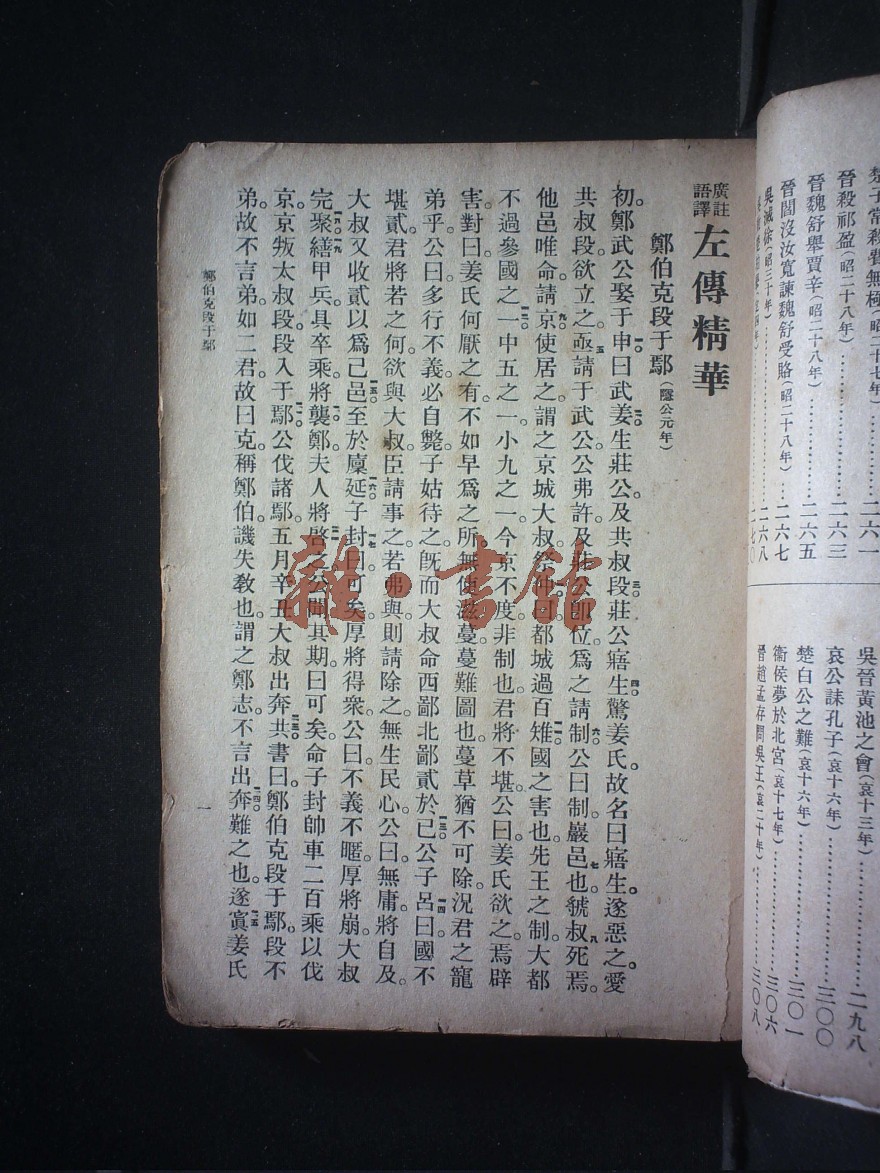 楚子常殺費無極(昭二十七年)………二六一
晉殺祁盈(昭二十八年)………二六三
晉魏舒舉賈辛(昭二十八年)………二六五
晉閻沒汝寬諫魏舒受賂(昭二十八年)…二六七
吳滅徐(昭三十年)………二六八
二七〇
吳晉黃池之會(哀十三年)………二九八
哀公誄孔子(哀十六年)………三〇〇
楚白公之難(哀十六年)………三〇一
衞侯夢於北宮(哀十七年)………三〇六
晉趙孟存問吳王(哀二十年)………三〇八
廣註語譯 左傳精華
鄭伯克段于鄢(隱公元年)
初。鄭武公娶于申。曰武姜。生莊公。及共叔段。莊公寤生。驚姜氏。故名曰寤生。遂惡之。愛
共叔段。欲立之。亟請于武公。公弗許。及莊公卽位。爲之請制。公曰。制。巖邑也。虢叔死焉。
他邑唯命。請京。使居之。謂之京城大叔。祭仲曰。都城過百雉。國之害也。先王之制。大都
不過參國之一。中五之一。小九之一。今京不度。非制也。君將不堪。公曰。姜氏欲之。焉辟
害。對曰。姜氏何厭之有。不如早爲之所。無使滋蔓。蔓難圖也。蔓草猶不可除。況君之寵
弟乎。公曰。多行不義。必自斃。子姑待之。旣而大叔命西鄙北鄙貳於己。公子呂曰。國不
堪貳。君將若之何。欲與大叔。臣請事之。若弗與。則請除之。無生民心。公曰。無庸。將自及。
大叔又收貳以爲己邑。至於廩延。子封曰。可矣。厚將得衆。公曰。不義不暱。厚將崩。大叔
完聚。繕甲兵。具卒乘。將襲鄭。夫人將啓之。公聞其期。曰。可矣。命子封帥車二百乘以伐
京。京叛太叔段。段入于鄢。公伐諸鄢。五月辛丑。大叔出奔共。書曰。鄭伯克段于鄢。段不
弟。故不言弟。如二君。故曰克。稱鄭伯。譏失敎也。謂之鄭志。不言出奔。難之也。遂寘姜氏
鄭伯克段于鄢
一
雜·書館